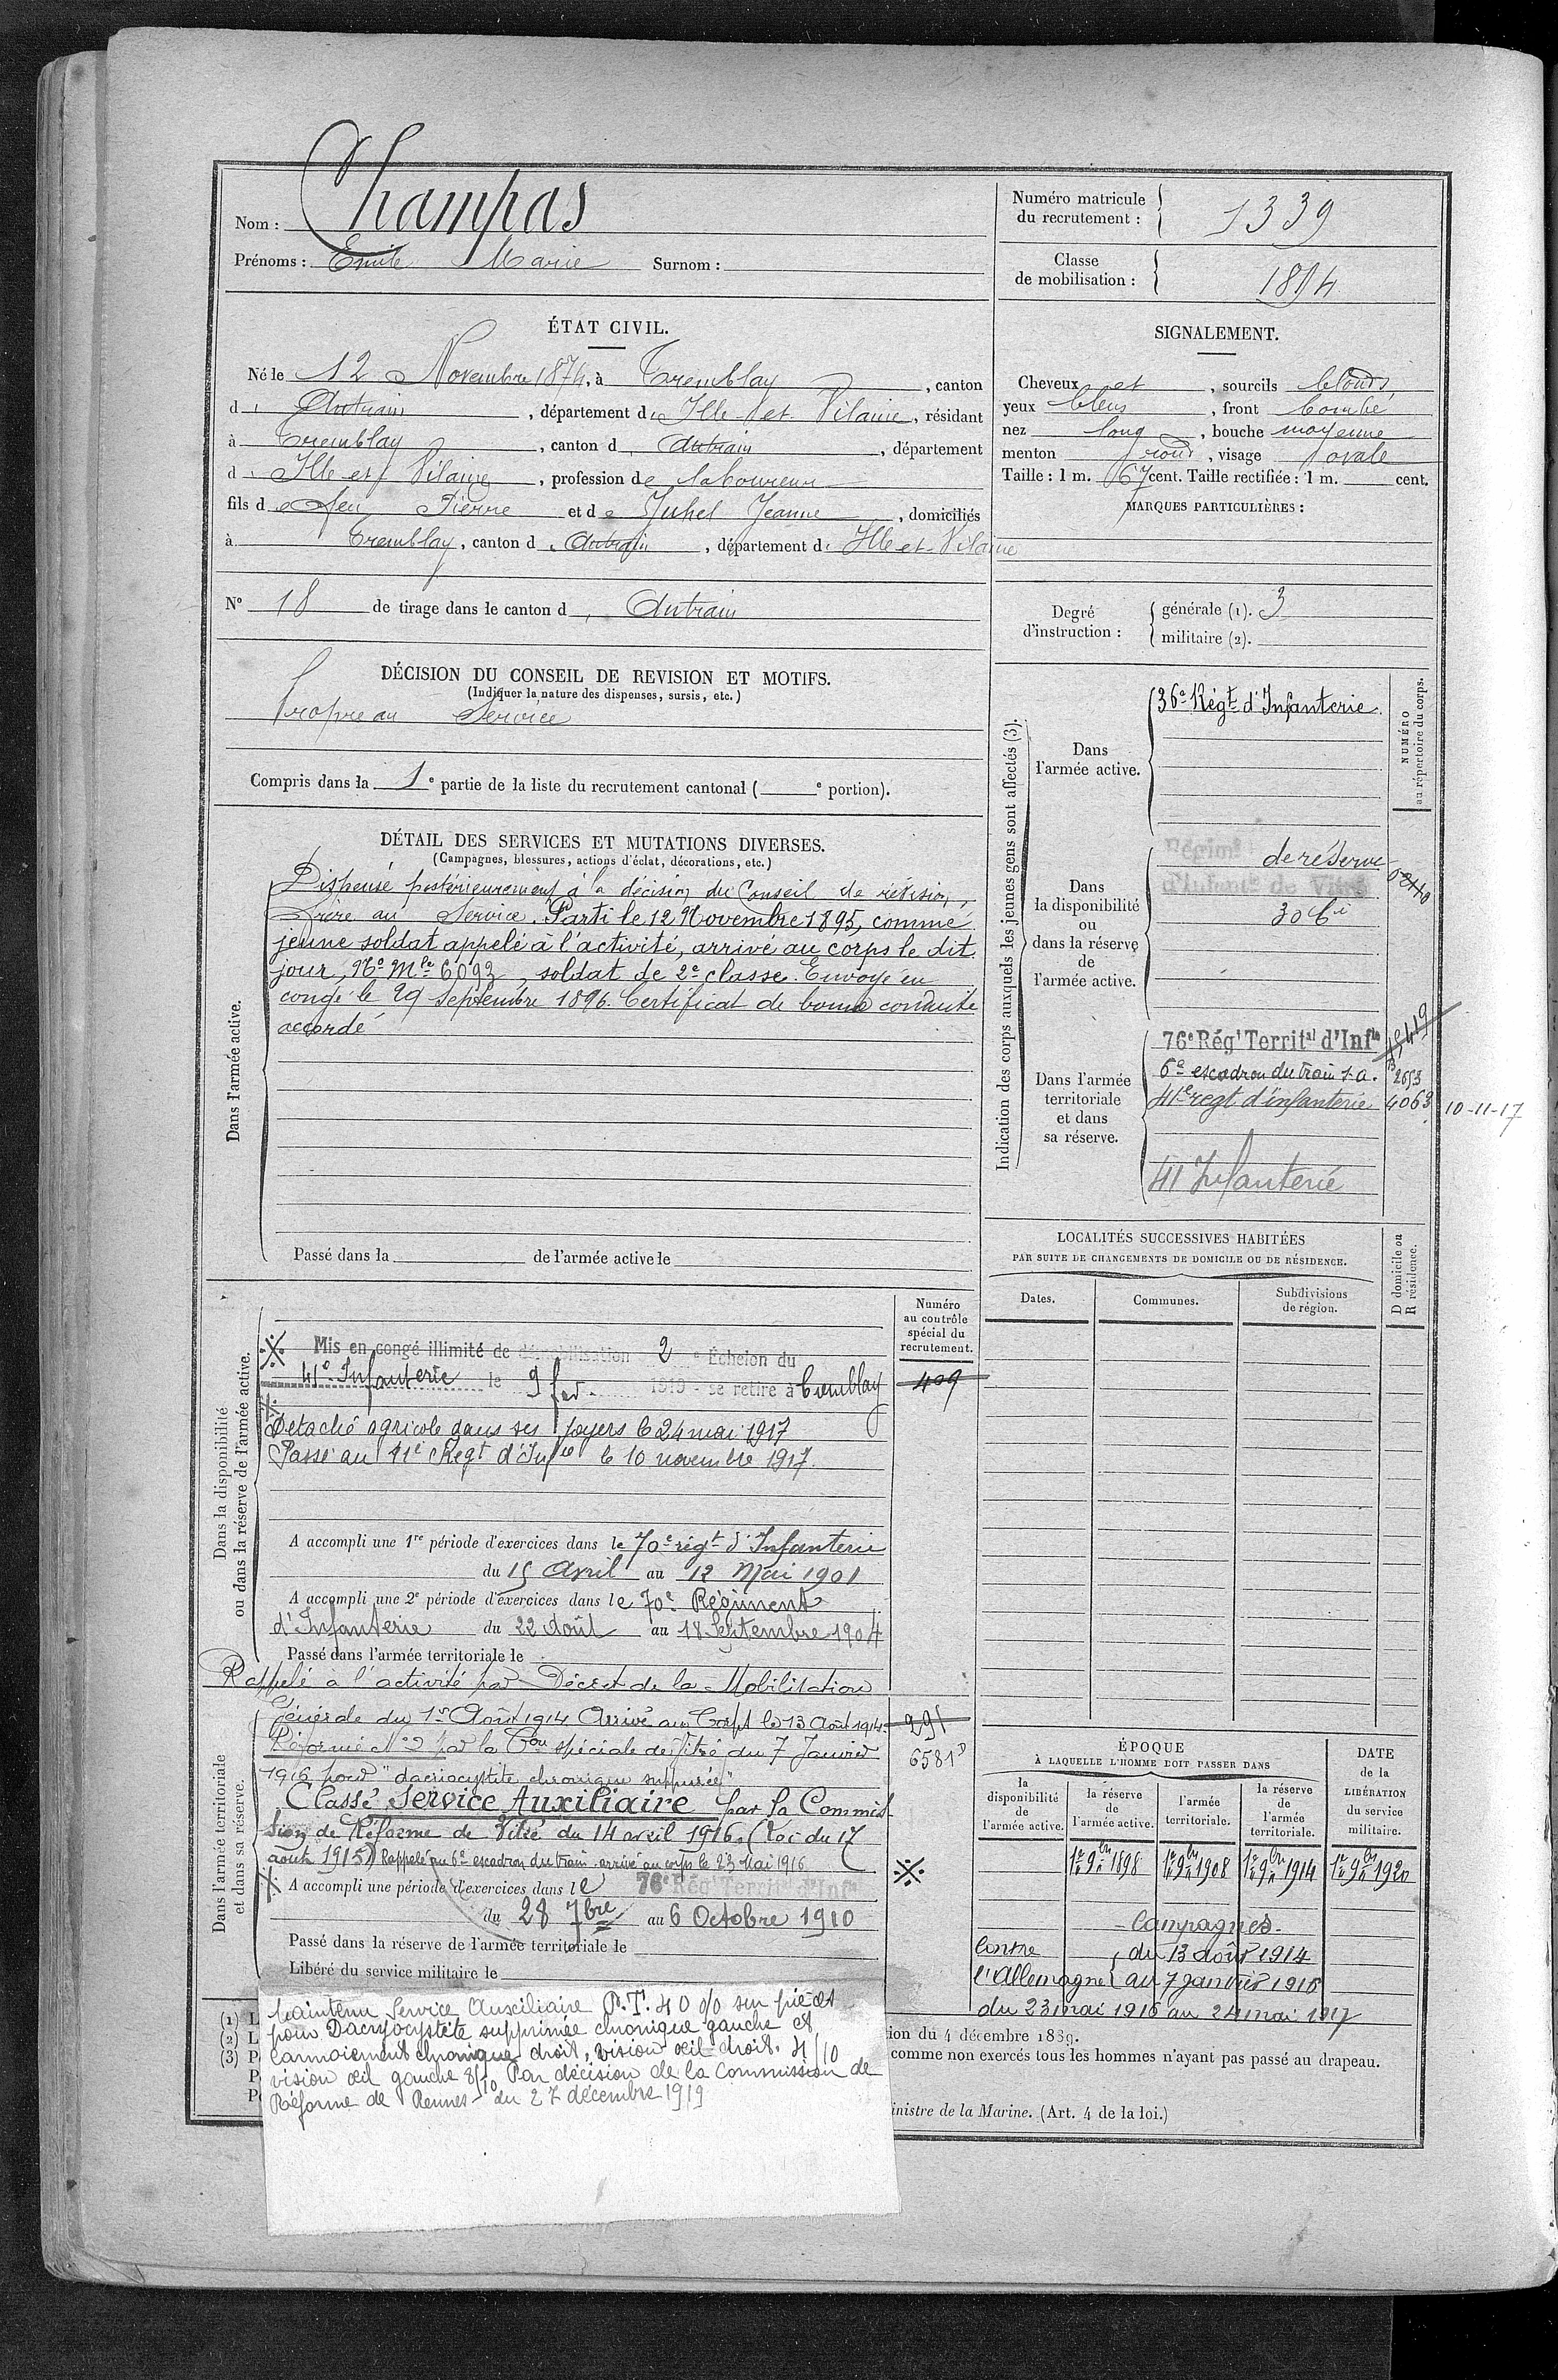 Nom : Champas
Prénoms : Emile Marie Surnom :
Numéro matricule du recrutement : 1339
Classe de mobilisation : 1894
ÉTAT CIVIL.
Né le 12 Novembre 1874, à Tremblay, canton
d' Antrain, département d' Ille-et-Vilaine, résidant
à Tremblay, canton d' Antrain, département
d' Ille et Vilaine, profession de laboureur
fils de feu Pierre et de Juhel Jeanne, domiciliés
à Tremblay, canton d' Antrain, département d' Ille-et-Vilaine
N° 18 de tirage dans le canton d' Antrain
SIGNALEMENT.
Cheveux et, sourcils blonds,
yeux bleus, front bombé
nez long, bouche moyenne
menton rond, visage ovale
Taille : 1 m. 67 cent. Taille rectifiée : 1 m. cent.
MARQUES PARTICULIÈRES :
Degré d'instruction :
générale (1). 3
militaire (2).
DÉCISION DU CONSEIL DE REVISION ET MOTIFS.
(Indiquer la nature des dispenses, sursis, etc.)
Propre au Service
Compris dans la 1e partie de la liste du recrutement cantonal ( e portion).
DÉTAIL DES SERVICES ET MUTATIONS DIVERSES.
(Campagnes, blessures, actions d'éclat, décorations, etc.)
Dans l'armée active.
Dispensé postérieurement à la décision du Conseil de révision,
Frère au Service. Parti le 12 Novembre 1895, comme
jeune soldat appelé à l'activité, arrivé au corps le dit
jour, No Mle 6093, soldat de 2e classe. Envoyé en
congé le 29 Septembre 1896. Certificat de bonne conduite
accordé
Passé dans la de l'armée active le
Indication des corps auxquels les jeunes gens sont affectés (3).
NUMÉRO au répertoire du corps.
Dans l'armée active.
36e Régt d'Infanterie.
Dans la disponibilité ou dans la réserve de l'armée active.
Régimt de réserve
d'Infantie de Vitré
306e
Dans l'armée territoriale et dans sa réserve.
76e Régt Territal d'Infie
6e escadron du train s.a. 2653
41e regt d'infanterie 4063 10-11-17
41 Infanterie
LOCALITÉS SUCCESSIVES HABITÉES
PAR SUITE DE CHANGEMENTS DE DOMICILE OU DE RÉSIDENCE.
Dates. Communes. Subdivisions de région. D domicile ou R résidence.
Dans la disponibilité ou dans la réserve de l'armée active.
Numéro au contrôle spécial du recrutement.
Mis en congé illimité de démobilisation 2e Échelon du
41e Infanterie le 9 fév. 1919 - se retire à Tremblay
409
Détaché agricole dans ses foyers le 24 mai 1917
Passé au 41e Regt d'Infie le 10 novembre 1917.
A accompli une 1re période d'exercices dans le 70e régt d'Infanterie
du 15 Avril au 12 Mai 1901
A accompli une 2e période d'exercices dans le 70e Régiment
d'Infanterie du 22 Août au 18 Septembre 1904
Passé dans l'armée territoriale le
Rappelé à l'activité par Décret de la Mobilisation
Dans l'armée territoriale et dans sa réserve.
Générale du 1er Août 1914 Arrivé au Corps le 13 Août 1914.
291
Réformé No 2 par la Con spéciale de Vitré du 7 Janvier
6581
1916 pour "dacriocystite chronique suppurée"
Classé Service Auxiliaire par la Commis-
sion de Réforme de Vitré du 14 avril 1916. (Loi du 17
août 1915) Rappelé au 6e escadron du train arrivé au corps le 23 Mai 1916
A accompli une période d'exercices dans le 76e Régt Territal d'Infie
du 28 7bre au 6 Octobre 1910
Passé dans la réserve de l'armée territoriale le
Libéré du service militaire le
Maintenu Service Auxiliaire P.T. 40 0/0 sur pièces
pour Dacryocystite supprimée chronique gauche et
larmoiement chronique droit, vision œil droit. 4/10
vision œil gauche 8/10 Par décision de la Commission de
Réforme de Rennes du 27 décembre 1919
ÉPOQUE
À LAQUELLE L'HOMME DOIT PASSER DANS
la disponibilité de l'armée active.
la réserve de l'armée active.
l'armée territoriale.
la réserve de l'armée territoriale.
DATE de la LIBÉRATION du service militaire.
1er 9bre 1898 1er 9bre 1908 1er 9bre 1914 1er 9bre 1920
Campagnes.
Contre l'Allemagne du 13 août 1914
au 7 janvier 1916
du 23 mai 1916 au 24 mai 1917
ion du 4 décembre 1889.
comme non exercés tous les hommes n'ayant pas passé au drapeau.
inistre de la Marine. (Art. 4 de la loi.)